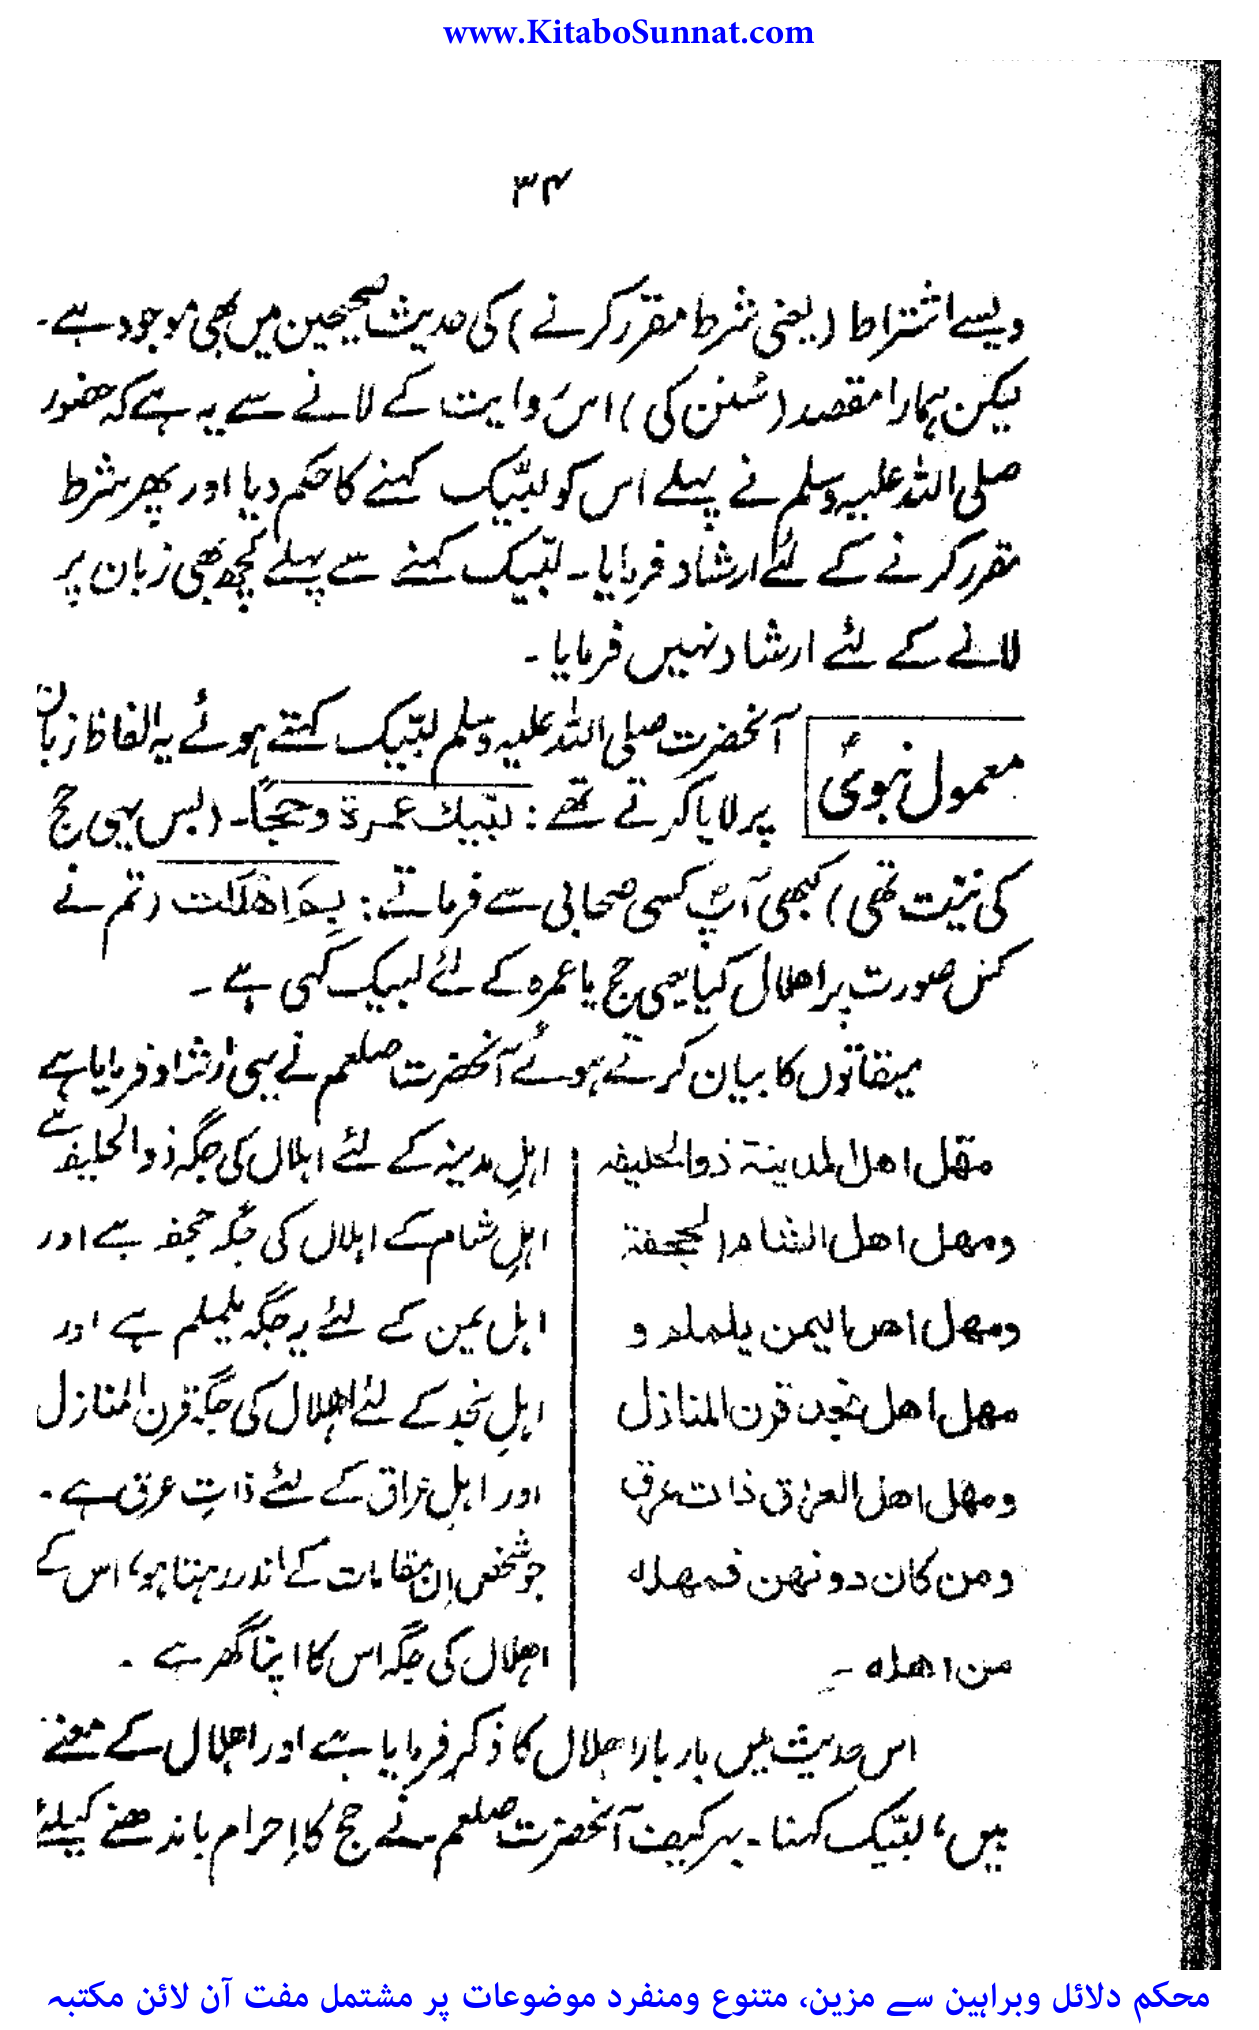 www.KitaboSunnat.com
۳۴
ویسے اشتراط (یعنی شرط مقرر کرنے) کی حدیث صحیحین میں بھی موجود ہے۔
لیکن ہمارا مقصد (سُنن کی) اس روایت کے لانے سے یہ ہے کہ حضور
صلی اللہ علیہ وسلم نے پہلے اس کو لبّیک کہنے کا حکم دیا اور پھر شرط
مقرر کرنے کے لئے ارشاد فرمایا۔ لبّیک کہنے سے پہلے کچھ بھی زبان پر
لانے کے لئے ارشاد نہیں فرمایا۔
معمول نبویؐ
آنحضرت صلی اللہ علیہ وسلم لبّیک کہتے ہوئے یہ الفاظ زبان
پر لایا کرتے تھے: لبّیك عمرة وحجًا۔ (بس یہی حج
کی نیّت تھی) کبھی آپؐ کسی صحابی سے فرماتے: بِمَ اهللت (تم نے
کس صورت پر اھلال کیا یعنی حج یا عمرہ کے لئے لبیک کہی ہے ۔
میقاتوں کا بیان کرتے ہوئے آنحضرت صلعم نے یہی ارشاد فرمایا ہے
مھل اھل المدینۃ ذوالحلیفہ
ومھل اھل الشام الجحفۃ
ومھل اھل الیمن یلملم و
مھل اھل نجد قرن المنازل
ومھل اھل العراق ذات عرق
ومن کان دونھن فمھلہ
من اھلہ ۔
اہلِ مدینہ کے لئے اہلال کی جگہ ذوالحلیفہ ہے
اہلِ شام کے اہلال کی جگہ جحفہ ہے اور
اہل یمن کے لئے یہ جگہ یلملم ہے اور
اہلِ نجد کے لئے اھلال کی جگہ قرن المنازل
اور اہلِ عراق کے لئے ذاتِ عرق ہے۔
جو شخص اِن مقامات کے اندر رہتا ہو، اس کے
اھلال کی جگہ اس کا اپنا گھر ہے ۔
اس حدیث میں بار بار اھلال کا ذکر فرمایا ہے اور اھلال کے معنے
ہیں، لبّیک کہنا۔ بہر کیف آنحضرت صلعم نے حج کا اِحرام باندھنے کیلئے
محکم دلائل وبراہین سے مزین، متنوع ومنفرد موضوعات پر مشتمل مفت آن لائن مکتبہ